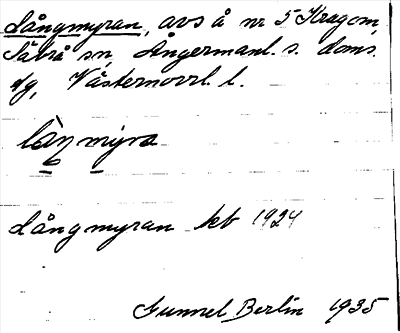 Långmyran, avs å nr 5 Kragom,
Säbrå sn, Ångermanl. s. doms.
Västernorrl. l.
Långmyran kb 1924
Gunnel Berlin 1935